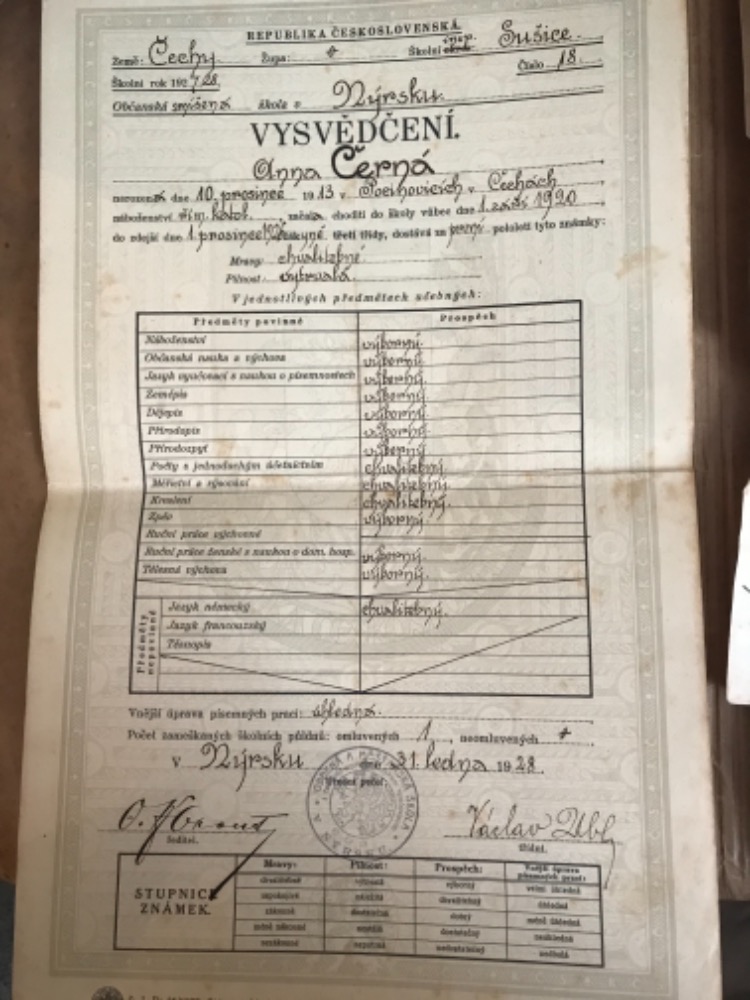 REPUBLIKA ČESKOSLOVENSKÁ.
Země: Čechy. Župa: + Školní Sušice.
Školní rok 1927/28. Číslo 18.
Občanská smíšená škola v Nýrsku.
VYSVĚDČENÍ.
Anna Černá
narozená dne 10. prosince 1913 v v Čechách
náboženství řím. katol. , začala choditi do školy vůbec dne 1. září 1920
do zdejší dne 1. prosince třetí třídy, dostává za pololetí tyto známky:
Mravy: chvalitebné
Pilnost: vytrvalá
V jednotlivých předmětech učebných:
Předměty povinné Prospěch
Náboženství výborný.
Občanská nauka a výchova výborný.
Jazyk vyučovací s naukou o písemnostech výborný.
Zeměpis výborný.
Dějepis výborný.
Přírodopis výborný.
Přírodozpyt výborný
Počty s jednoduchým účetnictvím chvalitebný.
Měřictví a rýsování chvalitebný.
Kreslení chvalitebný.
Zpěv výborný
Ruční práce výchovné
Ruční práce ženské s naukou o dom. hosp. výborný.
Tělesná výchova výborný.
Předměty nepovinné
Jazyk německý chvalitebný.
Jazyk francouzský
Těsnopis
Vnější úprava písemných prací: úhledná.
Počet zameškaných školních půldnů: omluvených 1 , neomluvených +
v Nýrsku dne 31. ledna 1928.
Václav
ředitel. třídní.
STUPNICE ZNÁMEK.
Mravy: Pilnost: Prospěch: Vnější úprava písemných prací:
chvalitebné výborný velmi úhledná
chvalitebný úhledná
zákonné dostatečná dobrý méně úhledná
méně zákonné dostatečný neúhledná
nezákonné nepatrná nedostatečný nedbalá